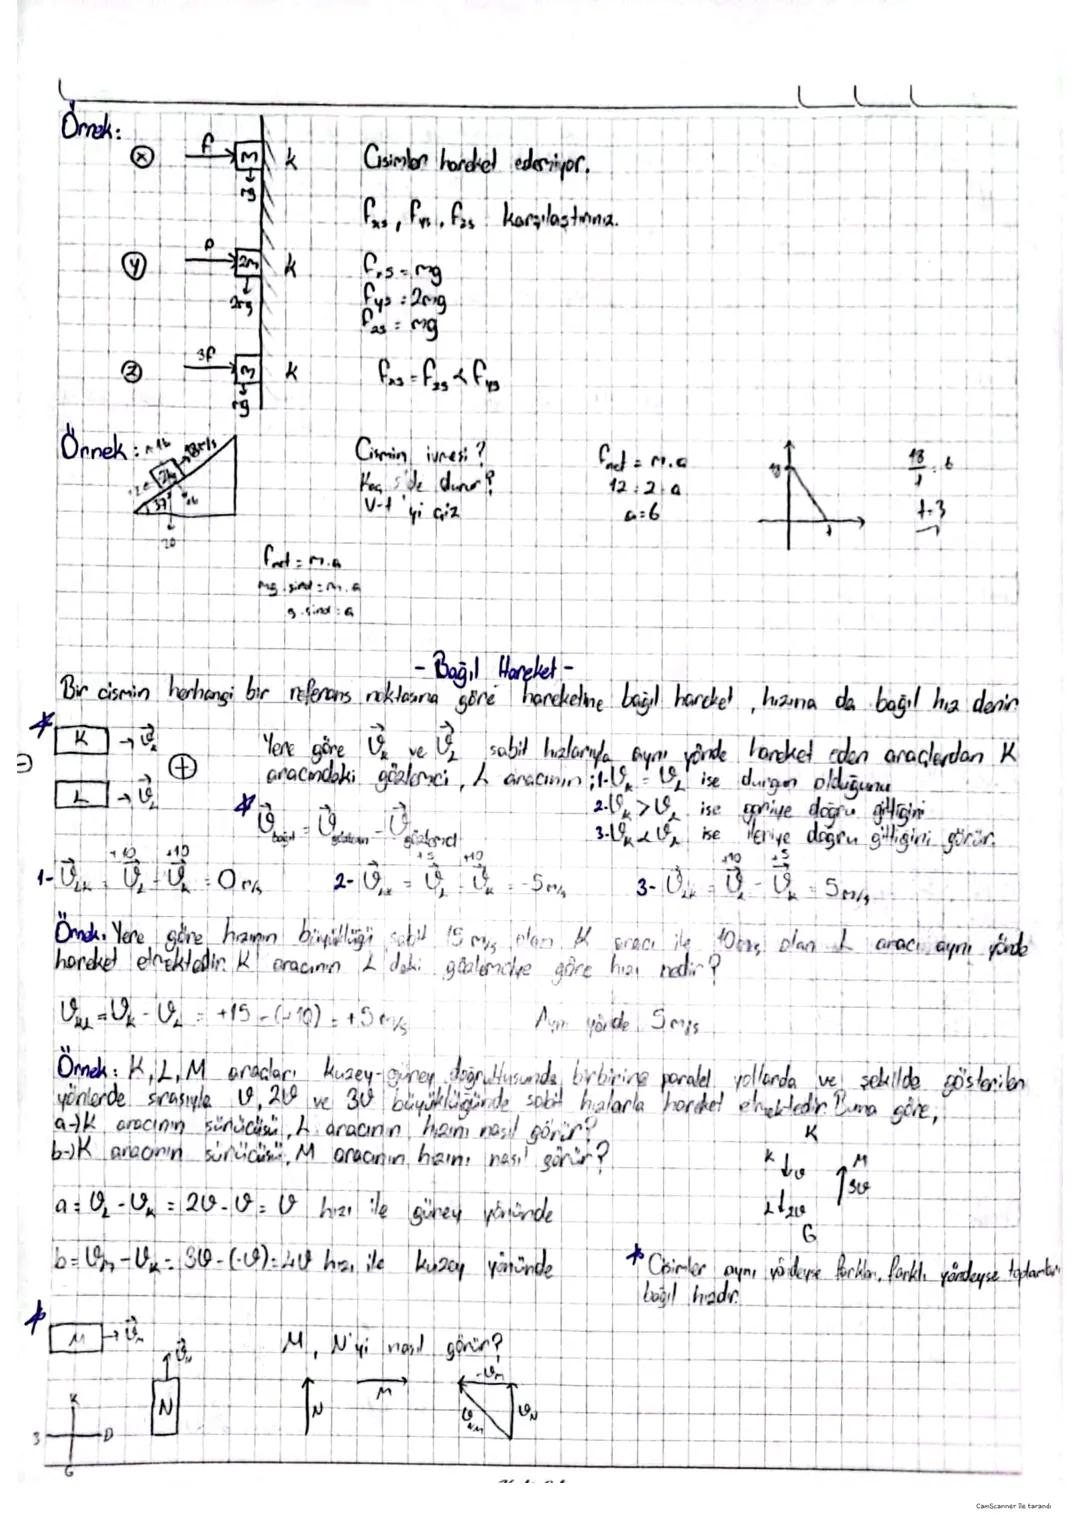 Örnek:
X F m mg k Cisimler hareket edemiyor.
Fxs, Fys, Fzs karşılaştırınız.
Y F 2m 2mg k Fxs = mg
Fys = 2mg
Fzs = mg
Z 3F m mg k Fxs = Fzs < Fys
Örnek: 18m/s 2kg 37° 20
Cismin ivmesi?
Kaç s'de durur?
V-t 'yi çiz
Fnet = m.a
12 = 2.a
a=6
18 t
18/t = 6
t=3
Fnet = m.a
mg.sinα = m.a
g.sinα = a
- Bağıl Hareket -
Bir cismin herhangi bir referans noktasına göre hareketine bağıl hareket, hızına da bağıl hız denir.
K → V⃗K
L → V⃗L
- +
Yere göre V⃗K ve V⃗L sabit hızlarıyla aynı yönde hareket eden araçlardan K
aracındaki gözlemci, L aracının; 1- VK = VL ise durgun olduğunu
2. VK > VL ise geriye doğru gittiğini
3- VK < VL ise ileriye doğru gittiğini görür.
* V⃗bağıl = V⃗gözlenen - V⃗gözlemci
1- V⃗LK = V⃗L - V⃗K = 0 m/s +10 +10
2- V⃗LK = V⃗L - V⃗K = -5 m/s +5 +10
3- V⃗LK = V⃗L - V⃗K = 5 m/s +10 +5
Örnek: Yere göre hızının büyüklüğü sabit 15 m/s olan K aracı ile 10 m/s olan L aracı aynı yönde
hareket etmektedir. K aracının L deki gözlemciye göre hızı nedir?
VKL = VK - VL = +15 - (+10) = +5 m/s Aynı yönde 5 m/s
Örnek: K, L, M araçları kuzey-güney doğrultusunda birbirine paralel yollarda ve şekilde gösterilen
yönlerde sırasıyla V, 2V ve 3V büyüklüğünde sabit hızlarla hareket etmektedir. Buna göre,
a-) K aracının sürücüsü, L aracının hızını nasıl görür?
b-) K aracının sürücüsü, M aracının hızını nasıl görür?
K
K V M 3V
L 2V
G
a = VL - VK = 2V - V = V hızı ile güney yönünde
b = VM - VK = 3V - (-V) = 4V hızı ile kuzey yönünde
* Cisimler aynı yöndeyse farkları, farklı yöndeyse toplamları
bağıl hızdır.
* M → V⃗M
N V⃗N
M, N'yi nasıl görür?
N M -VM VN VNM
K D G
CamScanner ile tarandı